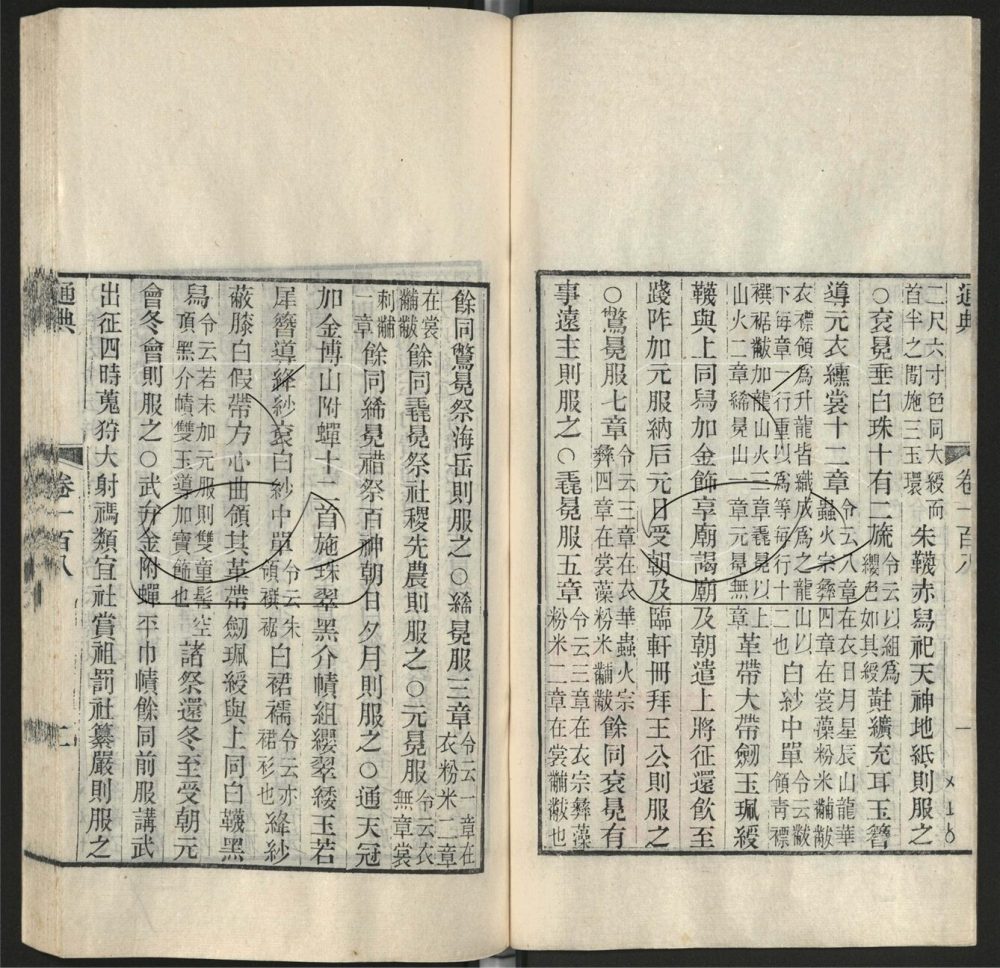 通典 卷一百八 一
二尺六寸色同大綬而首半之閒施三玉環朱韈赤舄祀天神地祇則服之
○袞冕垂白珠十有二旒令云以組爲纓色如其綬黈纊充耳玉簪
導元衣纁裳十二章令云八章在衣日月星辰山龍華蟲火宗彝四章在裳藻粉米黼黻
衣褾領爲升龍皆織成爲之龍山以下每章一行重以爲等每行十二也白紗中單令云黻領青褾
襈裾黻加龍山火三章毳冕以上山火二章絺冕山一章元冕無章革帶大帶劒玉珮綬
韈與上同舄加金飾享廟謁廟及朝遣上將征還飲至
踐阼加元服納后元日受朝及臨軒冊拜王公則服之
○鷩冕服七章令云三章在衣華蟲火宗彝四章在裳藻粉米黼黻餘同袞冕有
事遠主則服之○毳冕服五章令云三章在衣宗彝藻粉米二章在裳黼黻也
餘同鷩冕祭海岳則服之○絺冕服三章令云一章在衣粉米二章
在裳黼黻餘同毳冕祭社稷先農則服之○元冕服令云衣無章裳
刺黼一章餘同絺冕䄍祭百神朝日夕月則服之○通天冠
加金博山附蟬十二首施珠翠黑介幘組纓翠緌玉若
犀簪導絳紗袞白紗中單令云朱領襈裾白裙襦令云亦裙衫也絳紗
蔽膝白假帶方心曲領其革帶劒珮綬與上同白韈黑
舄令云若未加元服則雙童髻空頂黑介幘雙玉導加寶飾也諸祭還冬至受朝元
會冬會則服之○武弁金附蟬平巾幘餘同前服講武
出征四時蒐狩大射禡類宜社賞祖罰社纂嚴則服之
通典 卷一百八 二